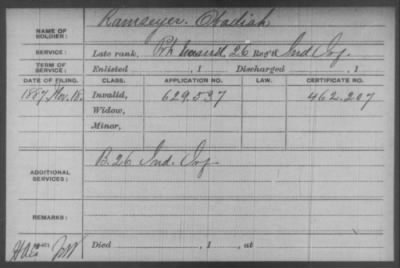 NAME OF SOLDIER: Ramseyer, Obadiah
SERVICE: Late rank, Pvt 26 Reg't Ind. Inf.
TERM OF SERVICE: Enlisted , 1 Discharged , 1
DATE OF FILING. CLASS. APPLICATION NO. LAW. CERTIFICATE NO.
1887, Nov. 18. Invalid, 629.537 462.207
Widow,
Minor,
ADDITIONAL SERVICES: B. 26 Ind. Inf.
REMARKS:
Died , 1 , at